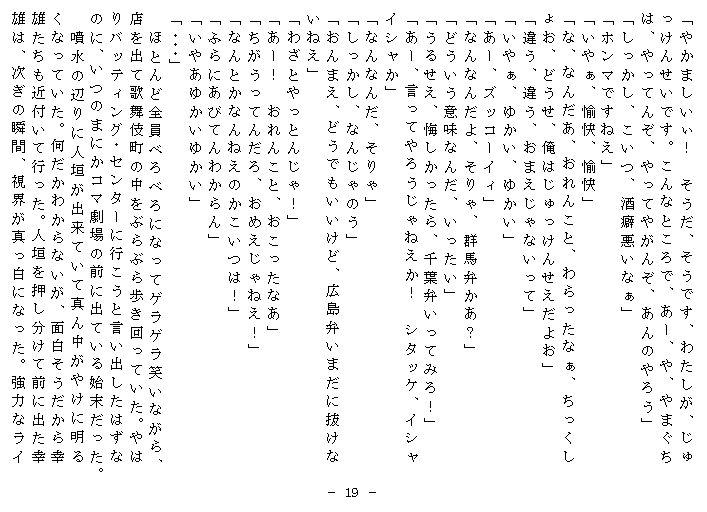 「やかましいぃ！　そうだ、そうです、わたしが、じゅ
っけんせいです。こんなところで、あー、や、やまぐち
は、やってんぞ、やってやがんぞ、あんのやろう」
「しっかし、こいつ、酒癖悪いなぁ」
「ホンマですねえ」
「いやぁ、愉快、愉快」
「な、なんだあ、おれんこと、わらったなぁ、ちっくし
ょお、どうせ、俺はじゅっけんせえだよお」
「違う、違う、おまえじゃないって」
「いやぁ、ゆかい、ゆかい」
「あー、ズッコーイィ」
「なんなんだよ、そりゃ、群馬弁かあ？」
「どういう意味なんだ、いったい」
「うるせえ、悔しかったら、千葉弁いってみろ！」
「あー、言ってやろうじゃねえか！　シタッケ、イシャ
イシャか」
「なんなんだ、そりゃ」
「しっかし、なんじゃのう」
「おんまえ、どうでもいいけど、広島弁いまだに抜けな
いねえ」
「わざとやっとんじゃ！」
「あー！　おれんこと、おこったなあ」
「ちがうってんだろ、おめえじゃねえ！」
「なんとかなんねえのかこいつは！」
「ふらにあびてんわからん」
「いやあゆかいゆかい」
「・・・」
　ほとんど全員べろべろになってゲラゲラ笑いながら、
店を出て歌舞伎町の中をぶらぶら歩き回っていた。やは
りバッティング・センターに行こうと言い出したはずな
のに、いつのまにかコマ劇場の前に出ている始末だった。
　噴水の辺りに人垣が出来ていて真ん中がやけに明る
くなっていた。何だかわからないが、面白そうだから幸
雄たちも近付いて行った。人垣を押し分けて前に出た幸
雄は、次ぎの瞬間、視界が真っ白になった。強力なライ
－ 19 －